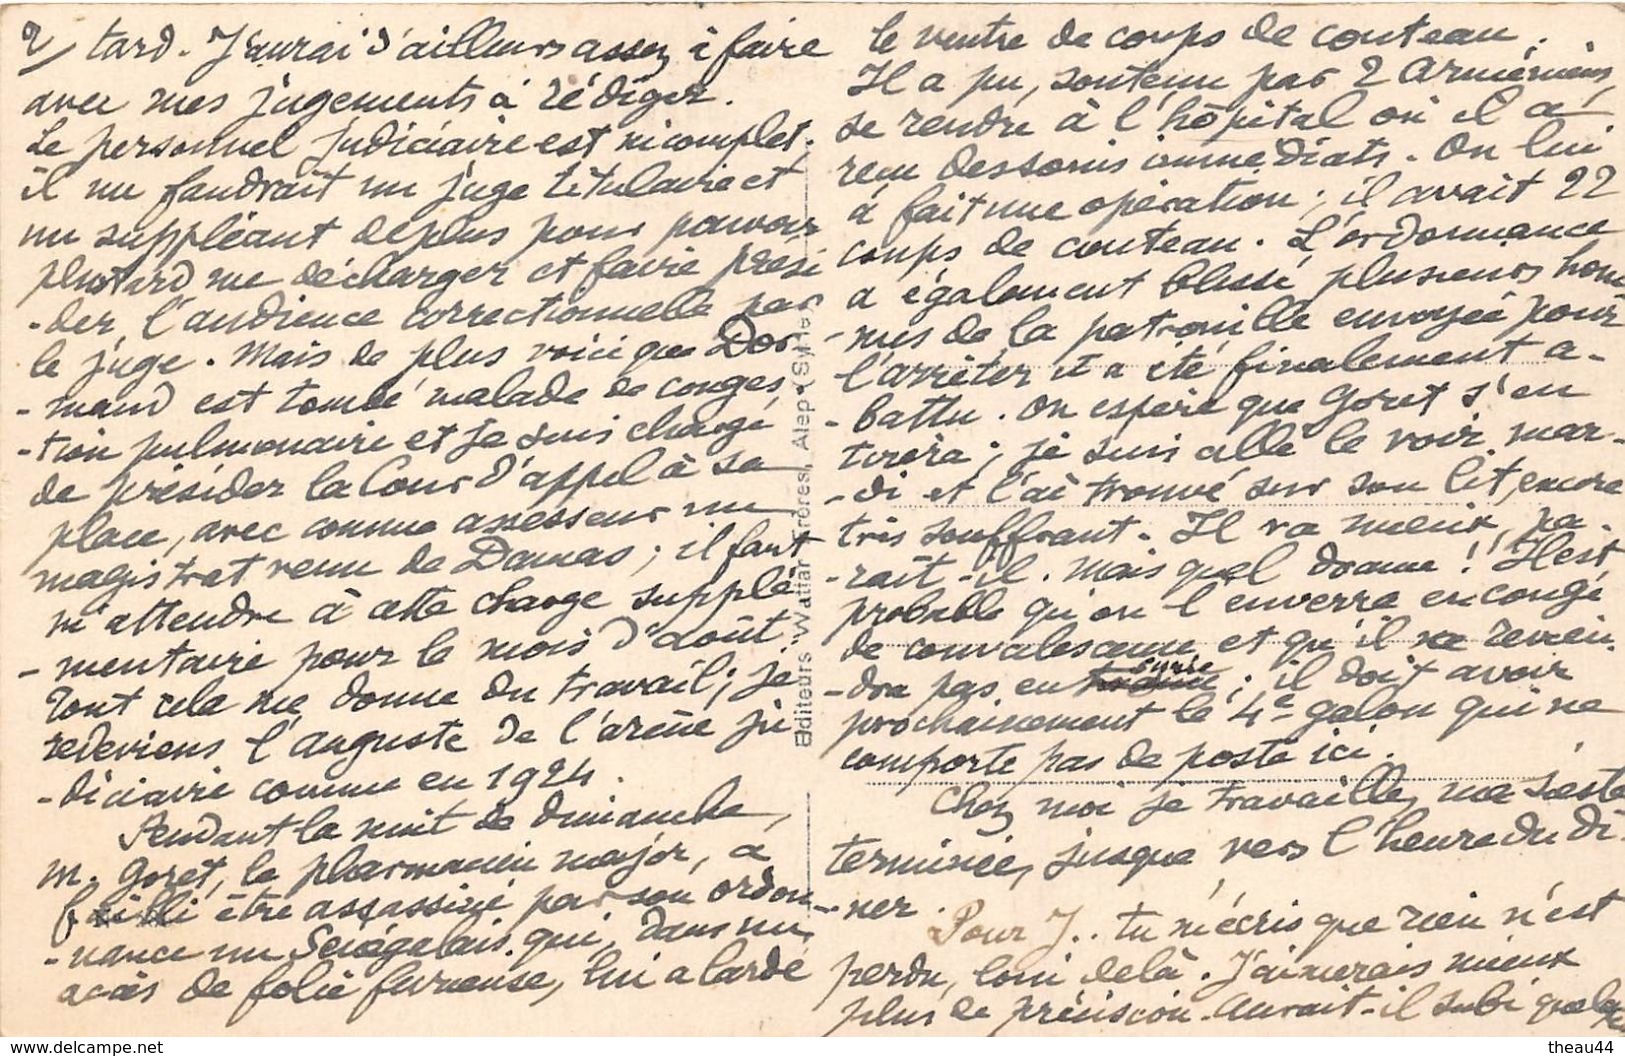 2/ tard. J'aurai d'ailleurs assez à faire
avec mes jugements à rédiger.
Le personnel judiciaire est incomplet.
il me faudrait un juge titulaire et
un suppléant de plus pour pouvoir
plus tard me décharger et faire prési
-der l'audience correctionnelle par
le juge. Mais de plus voici que Dor
-mand est tombé malade de conges,
-tion pulmonaire et je suis chargé
de présider la Cour d'appel à sa
place, avec comme assesseur un
magistrat venu de Damas ; il faut
m'attendre à cette charge supplé
-mentaire pour le mois d'août.
Tout cela me donne du travail ; je
redeviens l'auguste de l'arène ju
-diciaire comme en 1924.
Pendant la nuit de dimanche,
M. Goret, le pharmacien major, a
failli être assassiné par son ordon
-nance un Sénégalais qui, dans un
accès de folie furieuse, lui a lardé
le ventre de coups de couteau.
Il a pu, soutenu par 2 Arméniens,
se rendre à l'hôpital où il a
reçu des soins immédiats. On lui
a fait une opération ; il avait 22
coups de couteau. L'ordonnance
a également blessé plusieurs hom
-mes de la patrouille envoyée pour
l'arrêter et a été finalement a-
-battu. On espère que Goret s'en
tirera ; je suis allé le voir mar-
-di et l'ai trouvé sur son lit, encore
très souffrant. Il va mieux, pa-
-raît-il. Mais quel drame ! Il est
probable qu'on l'enverra en congé
de convalescence et qu'il ne revien
-dra pas en Syrie ; il doit avoir
prochainement le 4e galon qui ne
comporte pas de poste ici.
Chez moi je travaille, ma sieste
terminée, jusque vers l'heure du dî
-ner.
Pour J.. tu m'écris que rien n'est
perdu, loin de là. J'aimerais mieux
plus de précision. Aurait-il subi quelque
Editeurs Wattar Frères, Alep (Syrie)
theau44